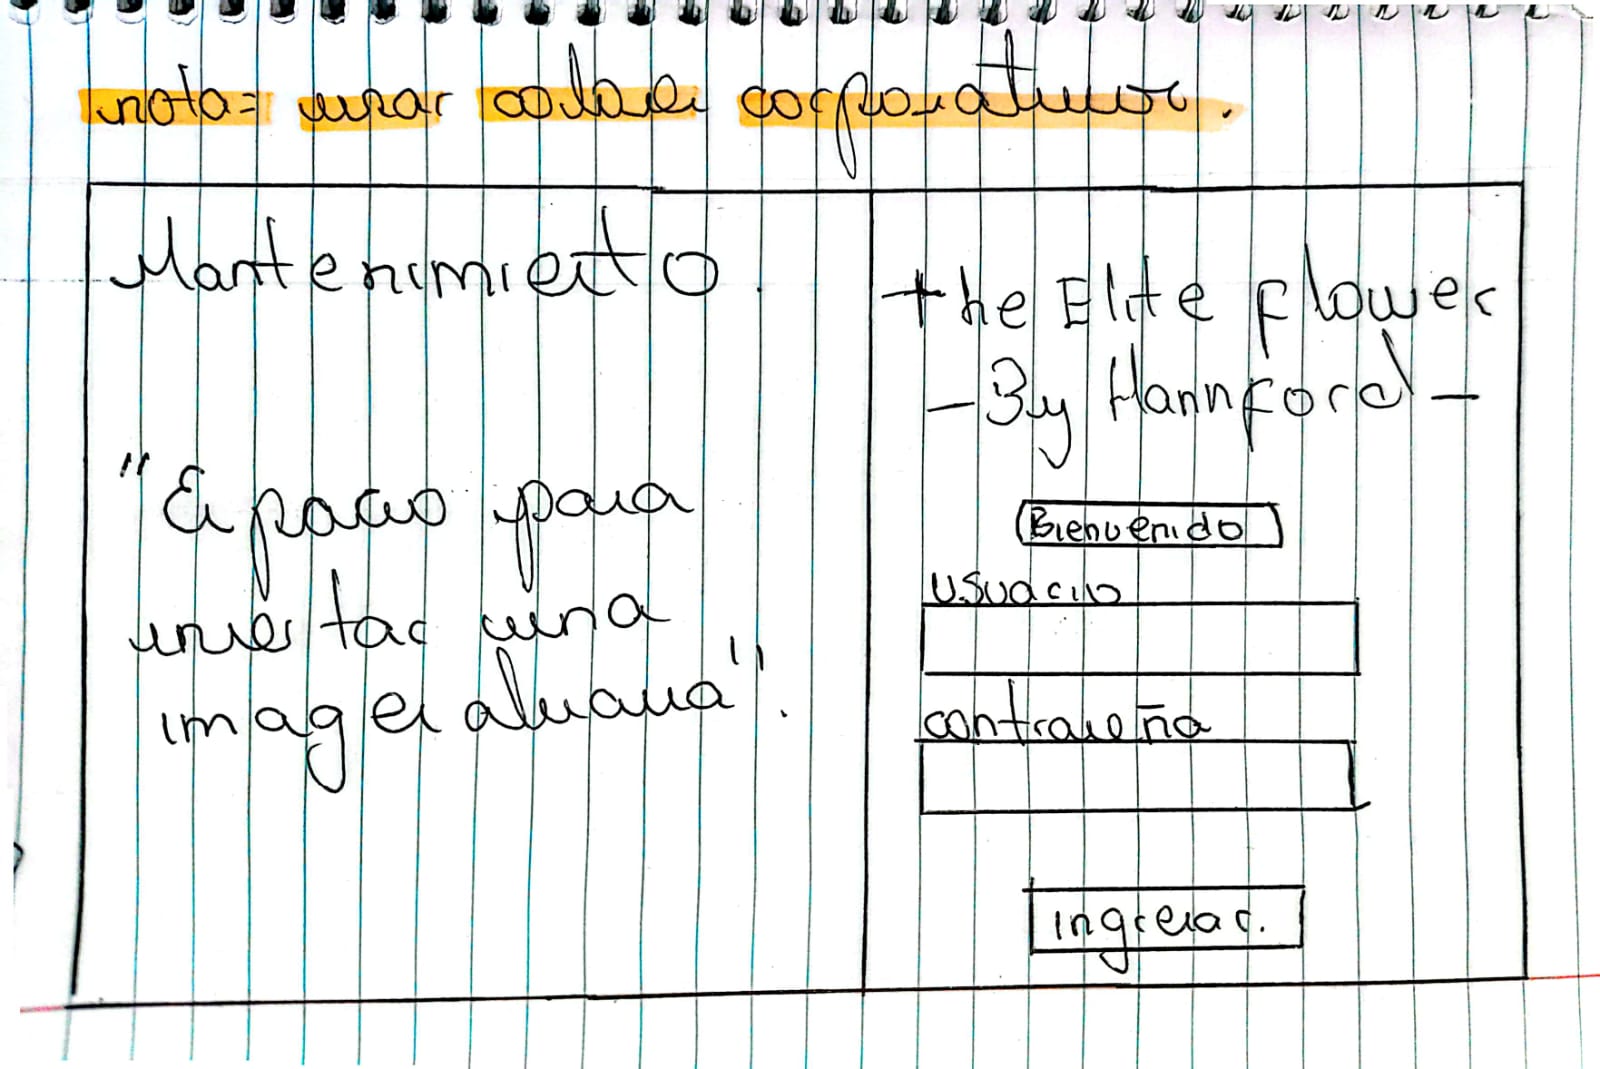 nota= usar colores corporativos.
Mantenimiento.
"Espacio para
insertar una
imagen alusiva".
the Elite flower
- By Hannford -
Bienvenido
Usuario
contraseña
ingresar.